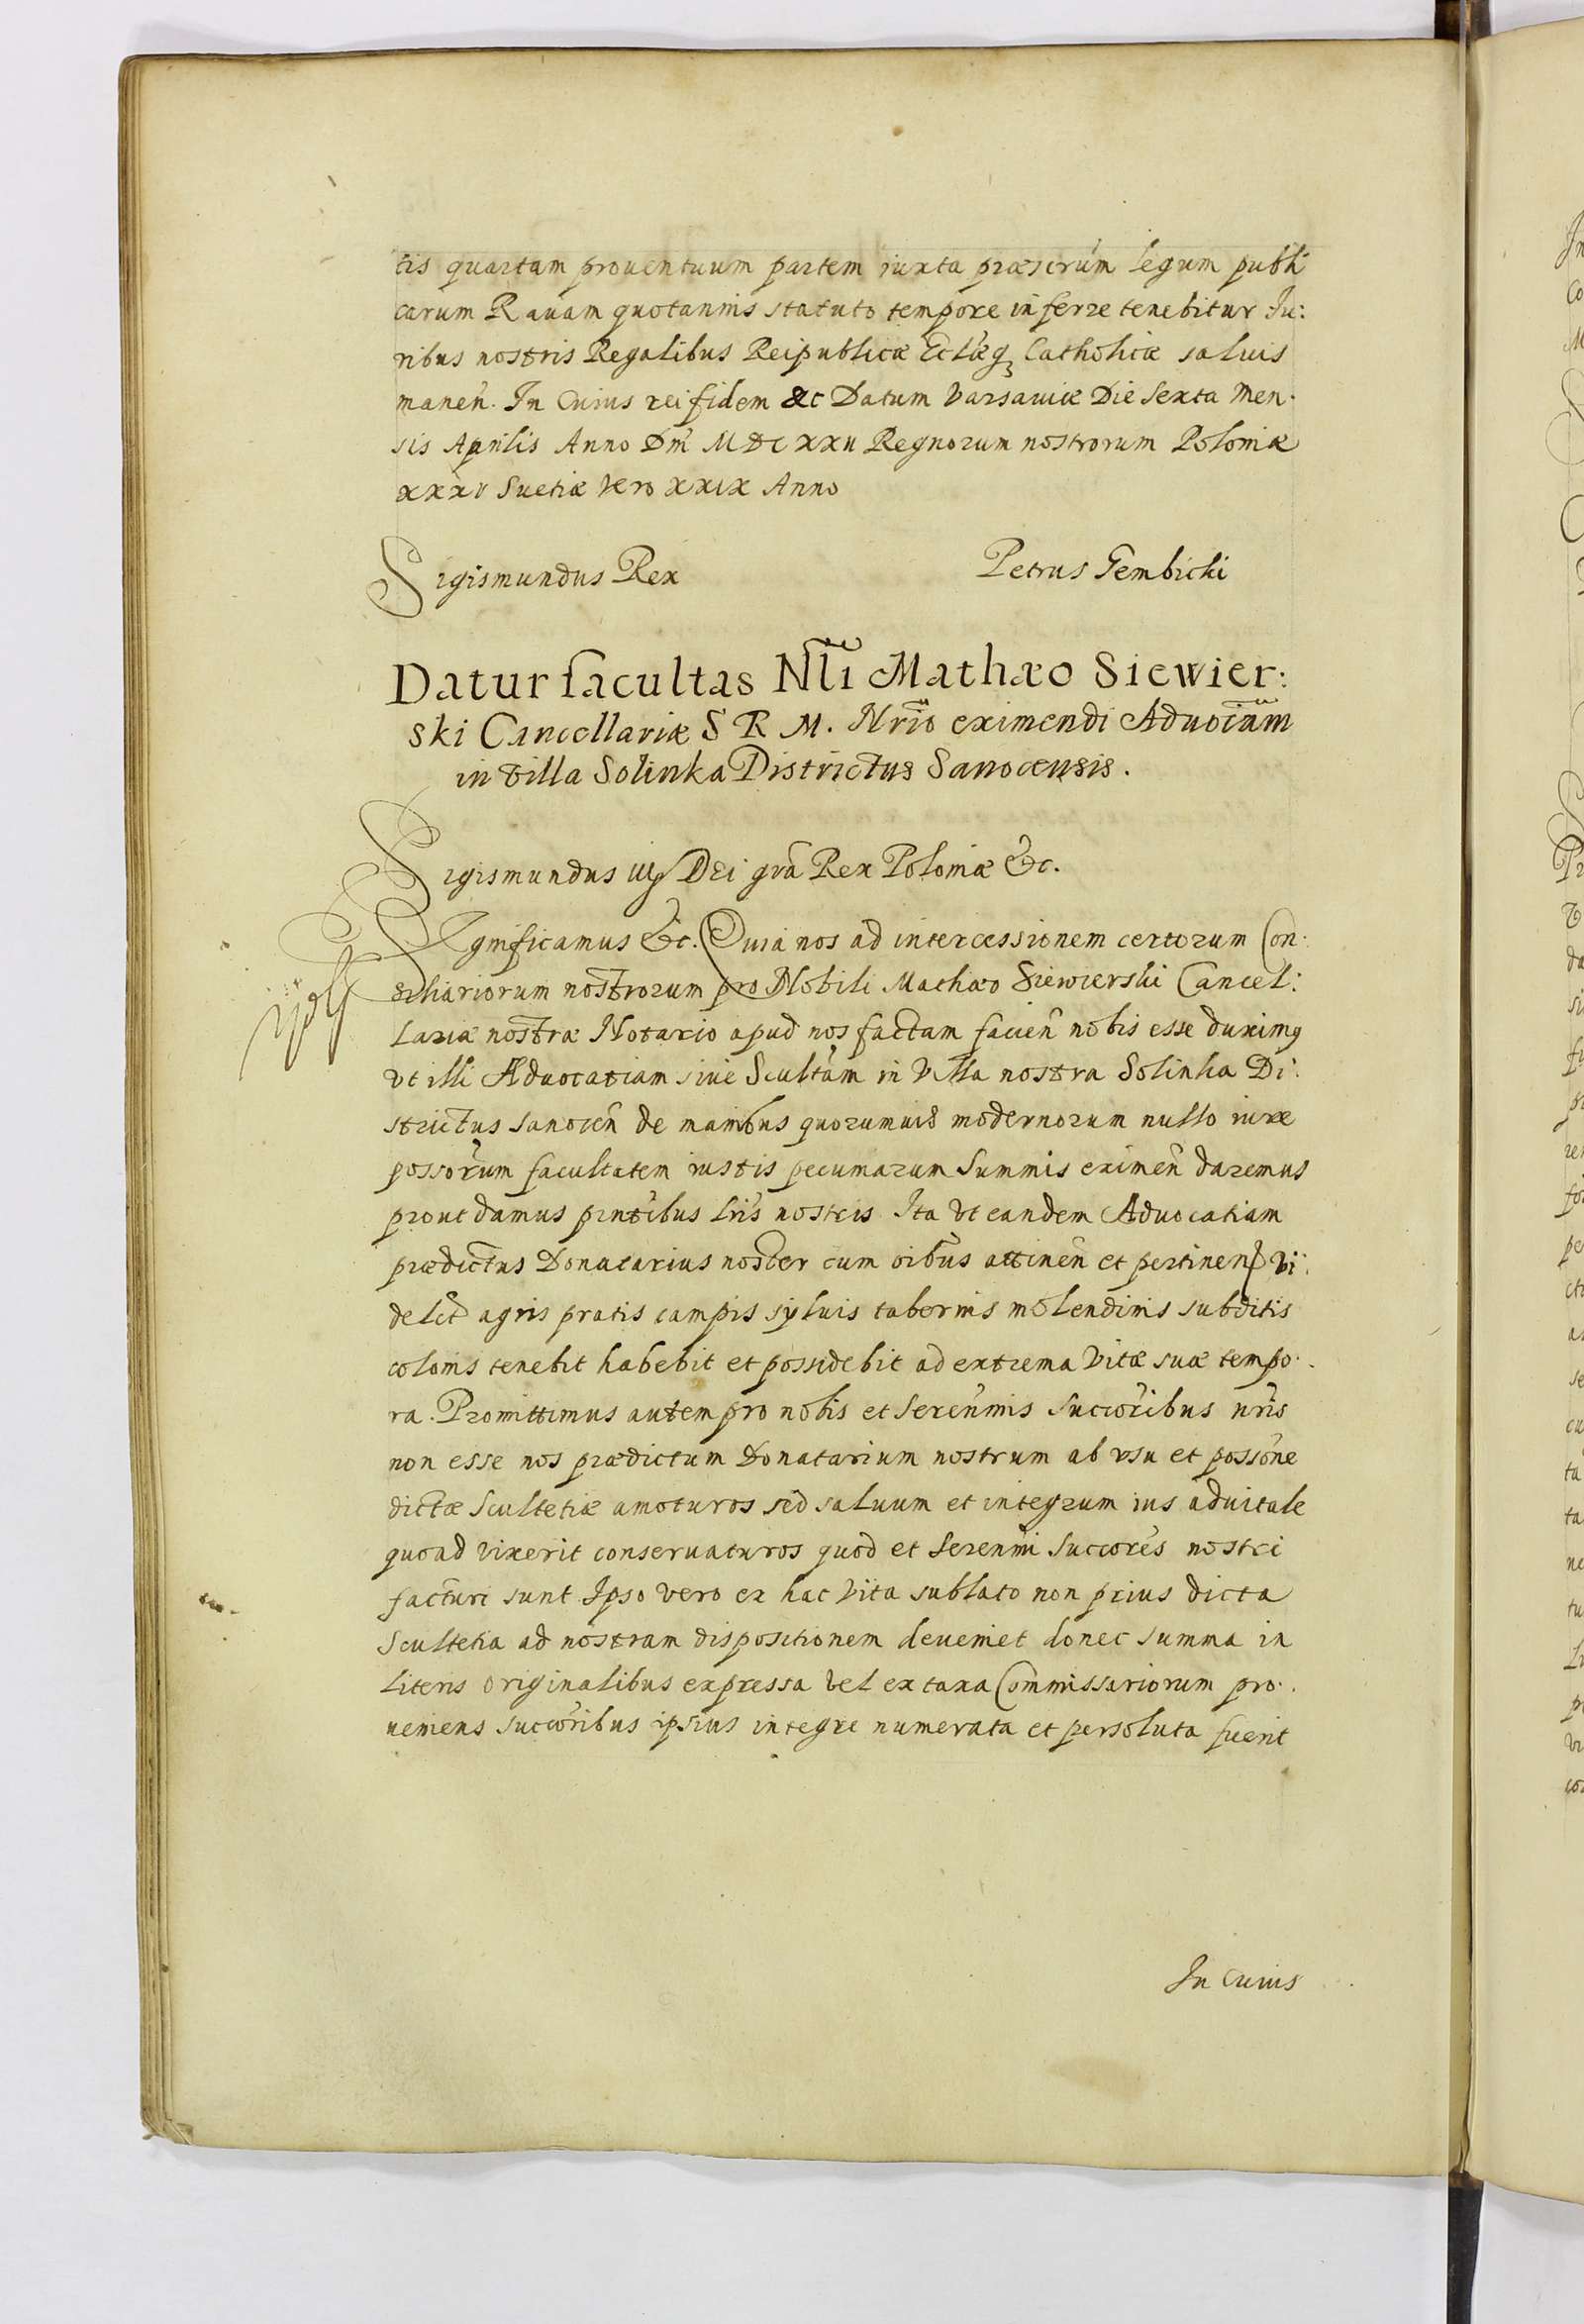 tis quartam prouentuum partem iuxta præscrũm legum publi
carum Rauam quotannis statuto tempore inferre tenebitur Iu:
ribus nostris Regalibus Reipublicæ Ecláeq₃ Catholicæ saluis
manen̄. In Cuius rei fidem &c Datum Varsauiæ Die Sexta Men.
sis Aprilis Anno Dn̄i MDCXXII Regnorum nostrorum Poloniæ
xxxv Suetiæ Vero xxix Anno
Sigismundus Rex
Petrus Gembicki
Datur facultas Nl̃i Mathæo Siewier:
ski Cancellariæ S R M. Nrĩo eximendi Aduocĩam
in Villa Solinka Districtus Sanocensis.
Sigismundus III Dei grã Rex Poloniæ &c.
Significamus &c. Quia nos ad intercessionem certorum Con.
siliariorum nostrorum pro Nobili Mathæo Siewierski Cancel:
lariæ nostræ Notario apud nos factam facien̄ nobis esse duximꝯ
vt illi Aduocatiam siue Scultãm in Villa nostra Solinka Di:
strictus Sanocen̄ de manibus quorumuis modernorum nullo iure
possor̃um facultatem iustis pecuniarum Summis eximen̄ daremus
prout damus pñtibus lr̃is nostris. Ita vt eandem Aduocatiam
prædictus Donatarius noster cum oĩbus attinen̄ et pertinen̄ Vi:
delĩt agris pratis campis syluis tabernis molendinis subditis
colonis tenebit habebit et possidebit ad extrema Vitæ suæ tempo.
ra. Promittimus autem pro nobis et Seren̄mis Succor̃ibus nr̃is
non esse nos prædictum Donatarium nostrum ab vsu et possõne
dictæ Scultetiæ amoturos sed saluum et integrum ius aduitale
quoad vixerit conseruaturos quod et Seren̄mi Succor̃es nostri
facturi sunt Ipso vero ex hac Vita sublato non prius dicta
Scultetia ad nostram dispositionem deueniet donec summa in
literis originalibus expressa vel ex taxa Commissariorum pro.
ueniens succor̃ibus ipsius integre numerata et persoluta fuerit
In Cuius